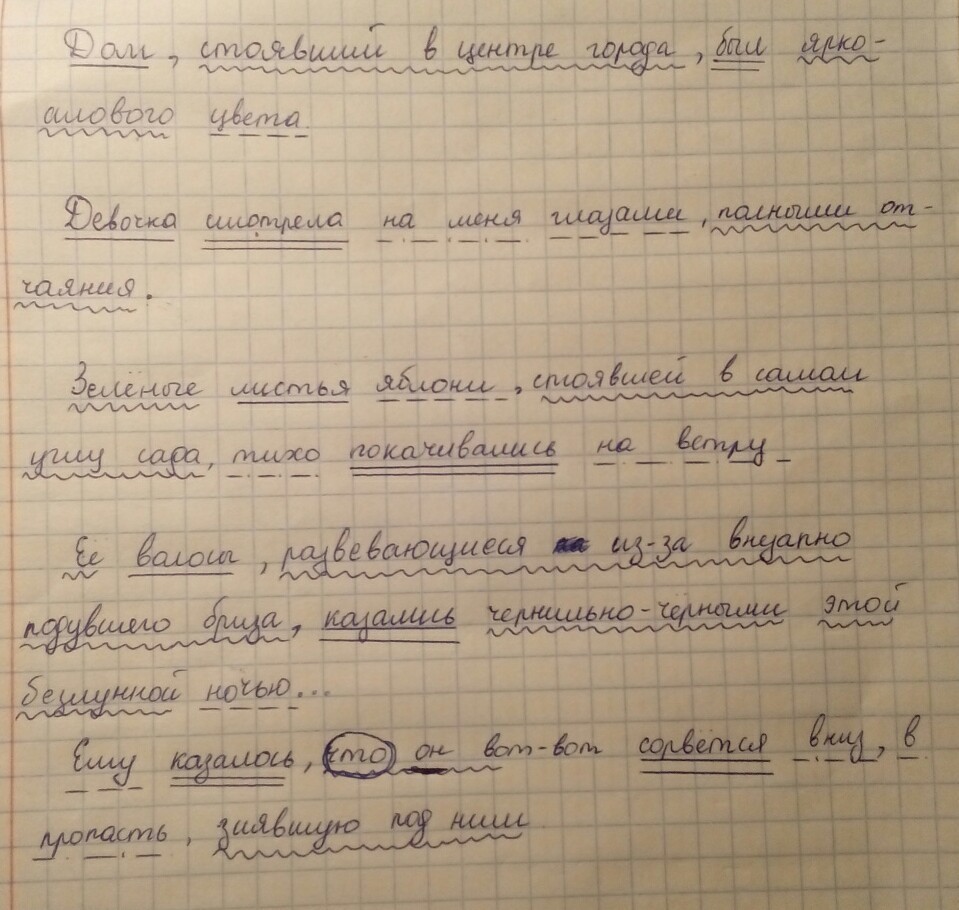 Дом, стоявший в центре города, был ярко-
алового цвета.
Девочка смотрела на меня глазами, полными от-
чаяния.
Зелёные листья яблони, стоявшей в самом
углу сада, тихо покачивались на ветру
Её волосы, развевающиеся из-за внезапно
подувшего бриза, казались чернильно-чёрными этой
безлунной ночью...
Ему казалось, что он вот-вот сорвётся вниз, в
пропасть, зиявшую под ним